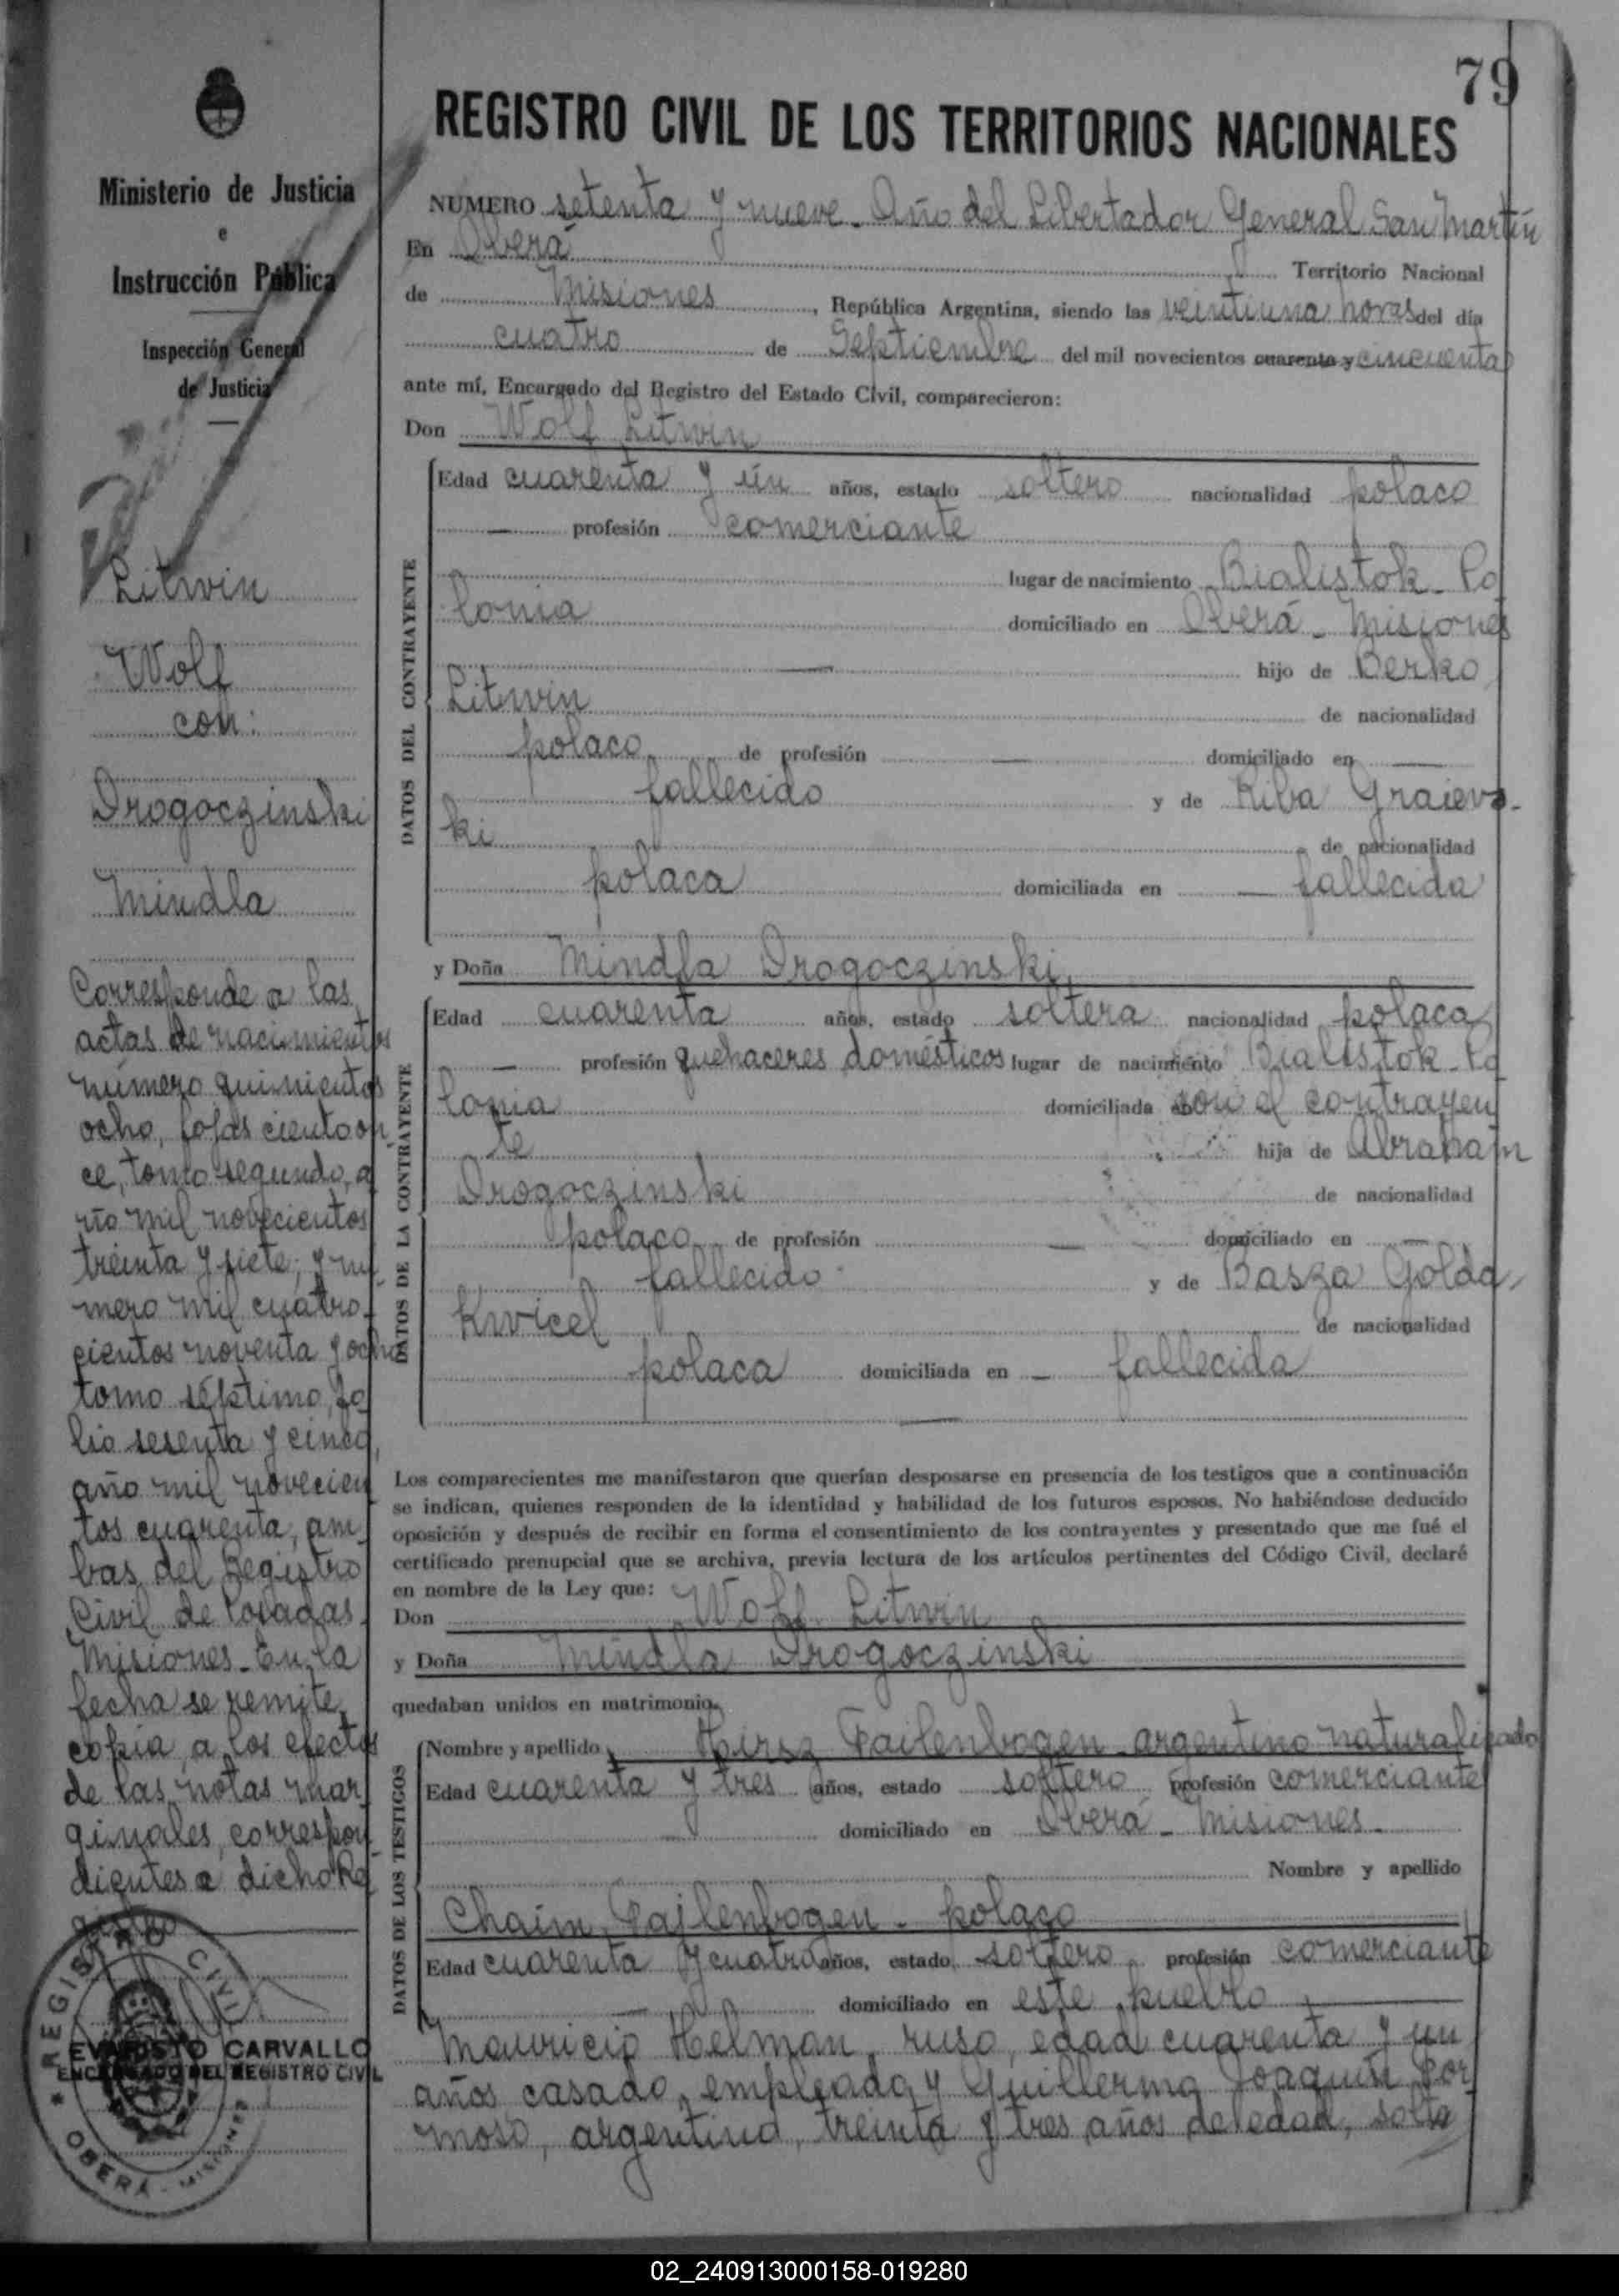 79
REGISTRO CIVIL DE LOS TERRITORIOS NACIONALES
Ministerio de Justicia
e
Instrucción Pública
Inspección General
de Justicia
Litwin
Wolf
con:
Drogoczinski
Mindla
Corresponde a las
actas de nacimientos
número quinientos
ocho, fojas ciento on
ce, tomo segundo, a
ño mil novecientos
treinta y siete; y nú
mero mil cuatro-
cientos noventa y ocho
tomo séptimo, fo
lio sesenta y cinco,
año mil novecien
tos cuarenta, am
bas del Registro
Civil de Posadas.
Misiones. En la
fecha se remite
copia a los efectos
de las notas mar
ginales correspon
dientes a dicho Re
gistro
REGISTRO CIVIL
EVARISTO CARVALLO
ENCARGADO DEL REGISTRO CIVIL
OBERÁ - MISIONES
NUMERO setenta y nueve. Año del Libertador General San Martín
En Oberá Territorio Nacional
de Misiones, República Argentina, siendo las veintiuna horas del día
cuatro de Septiembre del mil novecientos cuarenta y cincuenta
ante mí, Encargado del Registro del Estado Civil, comparecieron:
Don Wolf Litwin
DATOS DEL CONTRAYENTE
Edad cuarenta y ún años, estado soltero nacionalidad polaco
— profesión comerciante
lugar de nacimiento Bialistok - Po
lonia domiciliado en Oberá - Misiones
— hijo de Berko
Litwin de nacionalidad
polaco de profesión — domiciliado en —
fallecido y de Riba Graievs-
ki de nacionalidad
polaca domiciliada en — fallecida
y Doña Mindla Drogoczinski
DATOS DE LA CONTRAYENTE
Edad cuarenta años, estado soltera nacionalidad polaca
— profesión quehaceres domésticos lugar de nacimiento Bialistok - Po
lonia domiciliada con el contrayen
te hija de Abraham
Drogoczinski de nacionalidad
polaco de profesión — domiciliado en —
fallecido y de Basza Golda
Kwicel de nacionalidad
polaca domiciliada en — fallecida
—
Los comparecientes me manifestaron que querían desposarse en presencia de los testigos que a continuación
se indican, quienes responden de la identidad y habilidad de los futuros esposos. No habiéndose deducido
oposición y después de recibir en forma el consentimiento de los contrayentes y presentado que me fué el
certificado prenupcial que se archiva, previa lectura de los artículos pertinentes del Código Civil, declaré
en nombre de la Ley que:
Don Wolf Litwin
y Doña Mindla Drogoczinski
quedaban unidos en matrimonio.
DATOS DE LOS TESTIGOS
Nombre y apellido Hirsz Failenbogen - argentino naturalizado
Edad cuarenta y tres años, estado soltero profesión comerciante
domiciliado en Oberá - Misiones -
Nombre y apellido
Chaim Fajlenbogen - polaco
Edad cuarenta y cuatro años, estado soltero profesión comerciante
— domiciliado en este pueblo
Mauricio Helman, ruso, edad cuarenta y un
años casado, empleado y Guillermo Joaquín For
moso, argentino, treinta y tres años de edad, solte
02_240913000158-019280